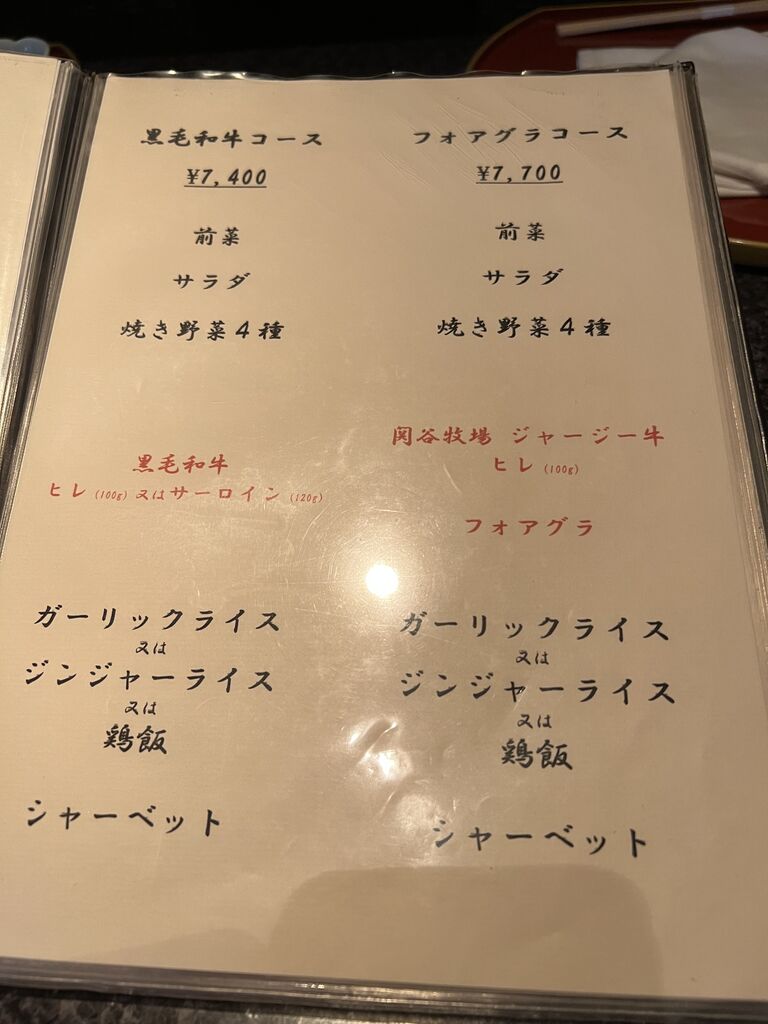 黒毛和牛コース
¥7,400
前菜
サラダ
焼き野菜4種
黒毛和牛
ヒレ(100g)又はサーロイン(120g)
ガーリックライス
又は
ジンジャーライス
又は
鶏飯
シャーベット
フォアグラコース
¥7,700
前菜
サラダ
焼き野菜4種
関谷牧場 ジャージー牛
ヒレ(100g)
フォアグラ
ガーリックライス
又は
ジンジャーライス
又は
鶏飯
シャーベット